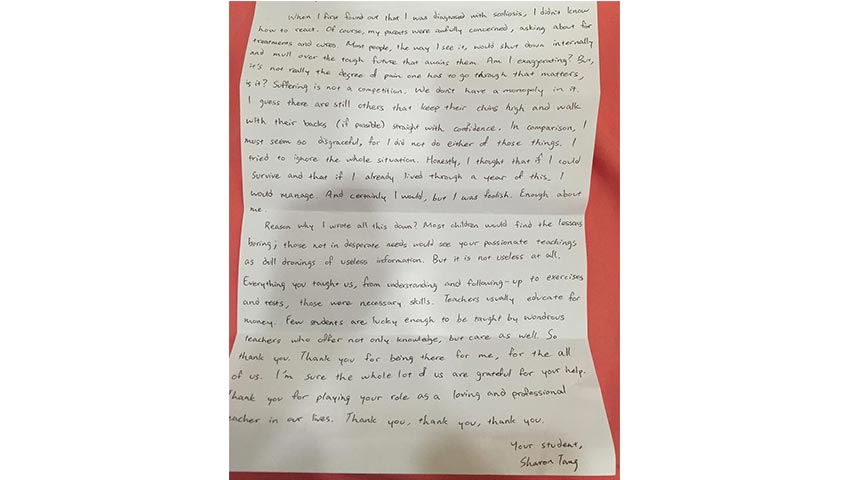 When I first found out that I was diagnosed with scoliosis, I didn't know
how to react. Of course, my parents were awfully concerned, asking about for
treatments and cures. Most people, the way I see it, would shut down internally
and mull over the tough future that awaits them. Am I exaggerating? But,
it's not really the degree of pain one has to go through that matters,
is it? Suffering is not a competition. We don't have a monopoly in it.
I guess there are still others that keep their chins high and walk
with their backs (if possible) straight with confidence. In comparison, I
must seem so disgraceful, for I did not do either of those things. I
tried to ignore the whole situation. Honestly, I thought that if I could
survive and that if I already lived through a year of this, I
would manage. And certainly I would, but I was foolish. Enough about
me.
Reason why I wrote all this down? Most children would find the lessons
boring; those not in desperate needs would see your passionate teachings
as dull dronings of useless information. But it is not useless at all.
Everything you taught us, from understanding and following-up to exercises
and tests, those were necessary skills. Teachers usually educate for
money. Few students are lucky enough to be taught by wondrous
teachers who offer not only knowledge, but care as well. So
thank you. Thank you for being there for me, for the all
of us. I'm sure the whole lot of us are grateful for your help.
Thank you for playing your role as a loving and professional
teacher in our lives. Thank you, thank you, thank you.
Your student,
Sharon Tang